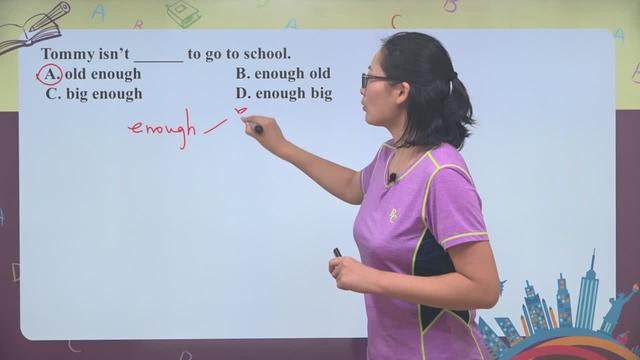 Tommy isn't ______ to go to school.
A. old enough B. enough old
C. big enough D. enough big
enough